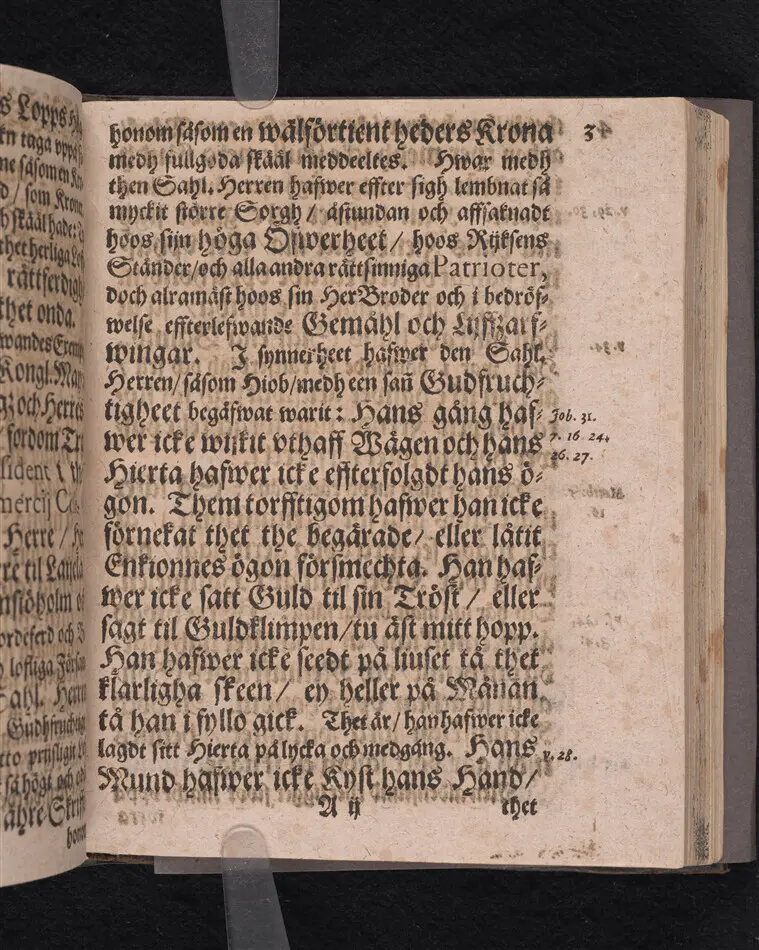 honom såsom en wälförtient heders Krona 3
medh fullgoda skääl meddeeltes. Hwar medh
then Sahl. Herren hafwer effter sigh lembnat så
myckit större Sorgh / åstundan och affsaknadt
hoos sijn höga Öfwerheet / hoos Rijksens
Ständer/och alla andra rättsinniga Patrioter,
doch alramäst hoos sin Her Broder och i bedröf-
welse effterlefwande Gemåhl och Lijffzarf-
wingar. J synnerheet hafwer den Sahl.
Herren/såsom Hiob/medh een sañ Gudfruch-
tigheet begåfwat warit: Hans gång haf-
wer icke wijkit vthaff Wägen och hans
Hierta hafwer icke effterfolgdt hans ö-
gon. Them torfftigom hafwer han icke
förnekat thet the begärade/ eller låtit
Enkionnes ögon försmechta. Han haf-
wer icke satt Guld til sin Tröst / eller
sagt til Guldklimpen/tu äst mitt hopp.
Han hafwer icke seedt på liuset tå thet
klarligha skeen/ ey heller på Månan
tå han i fyllo gick. Thet är/ han hafwer icke
lagdt sitt Hierta på lycka och medgång. Hans
Mund hafwer icke Kyst hans Hand/
A ij thet
Job. 31.
7. 16 24.
26. 27.
v. 28.
s Lopps
me såsom en
d / som Kron
thet herliga
rättferdig
thet onda.
Kongl. May
och Herre
fordom
sident
mercij
Herre /
re til
ordeferd och
lofliga
Sahl. Herr
Gudhfruch
så högt och
ähre
hono